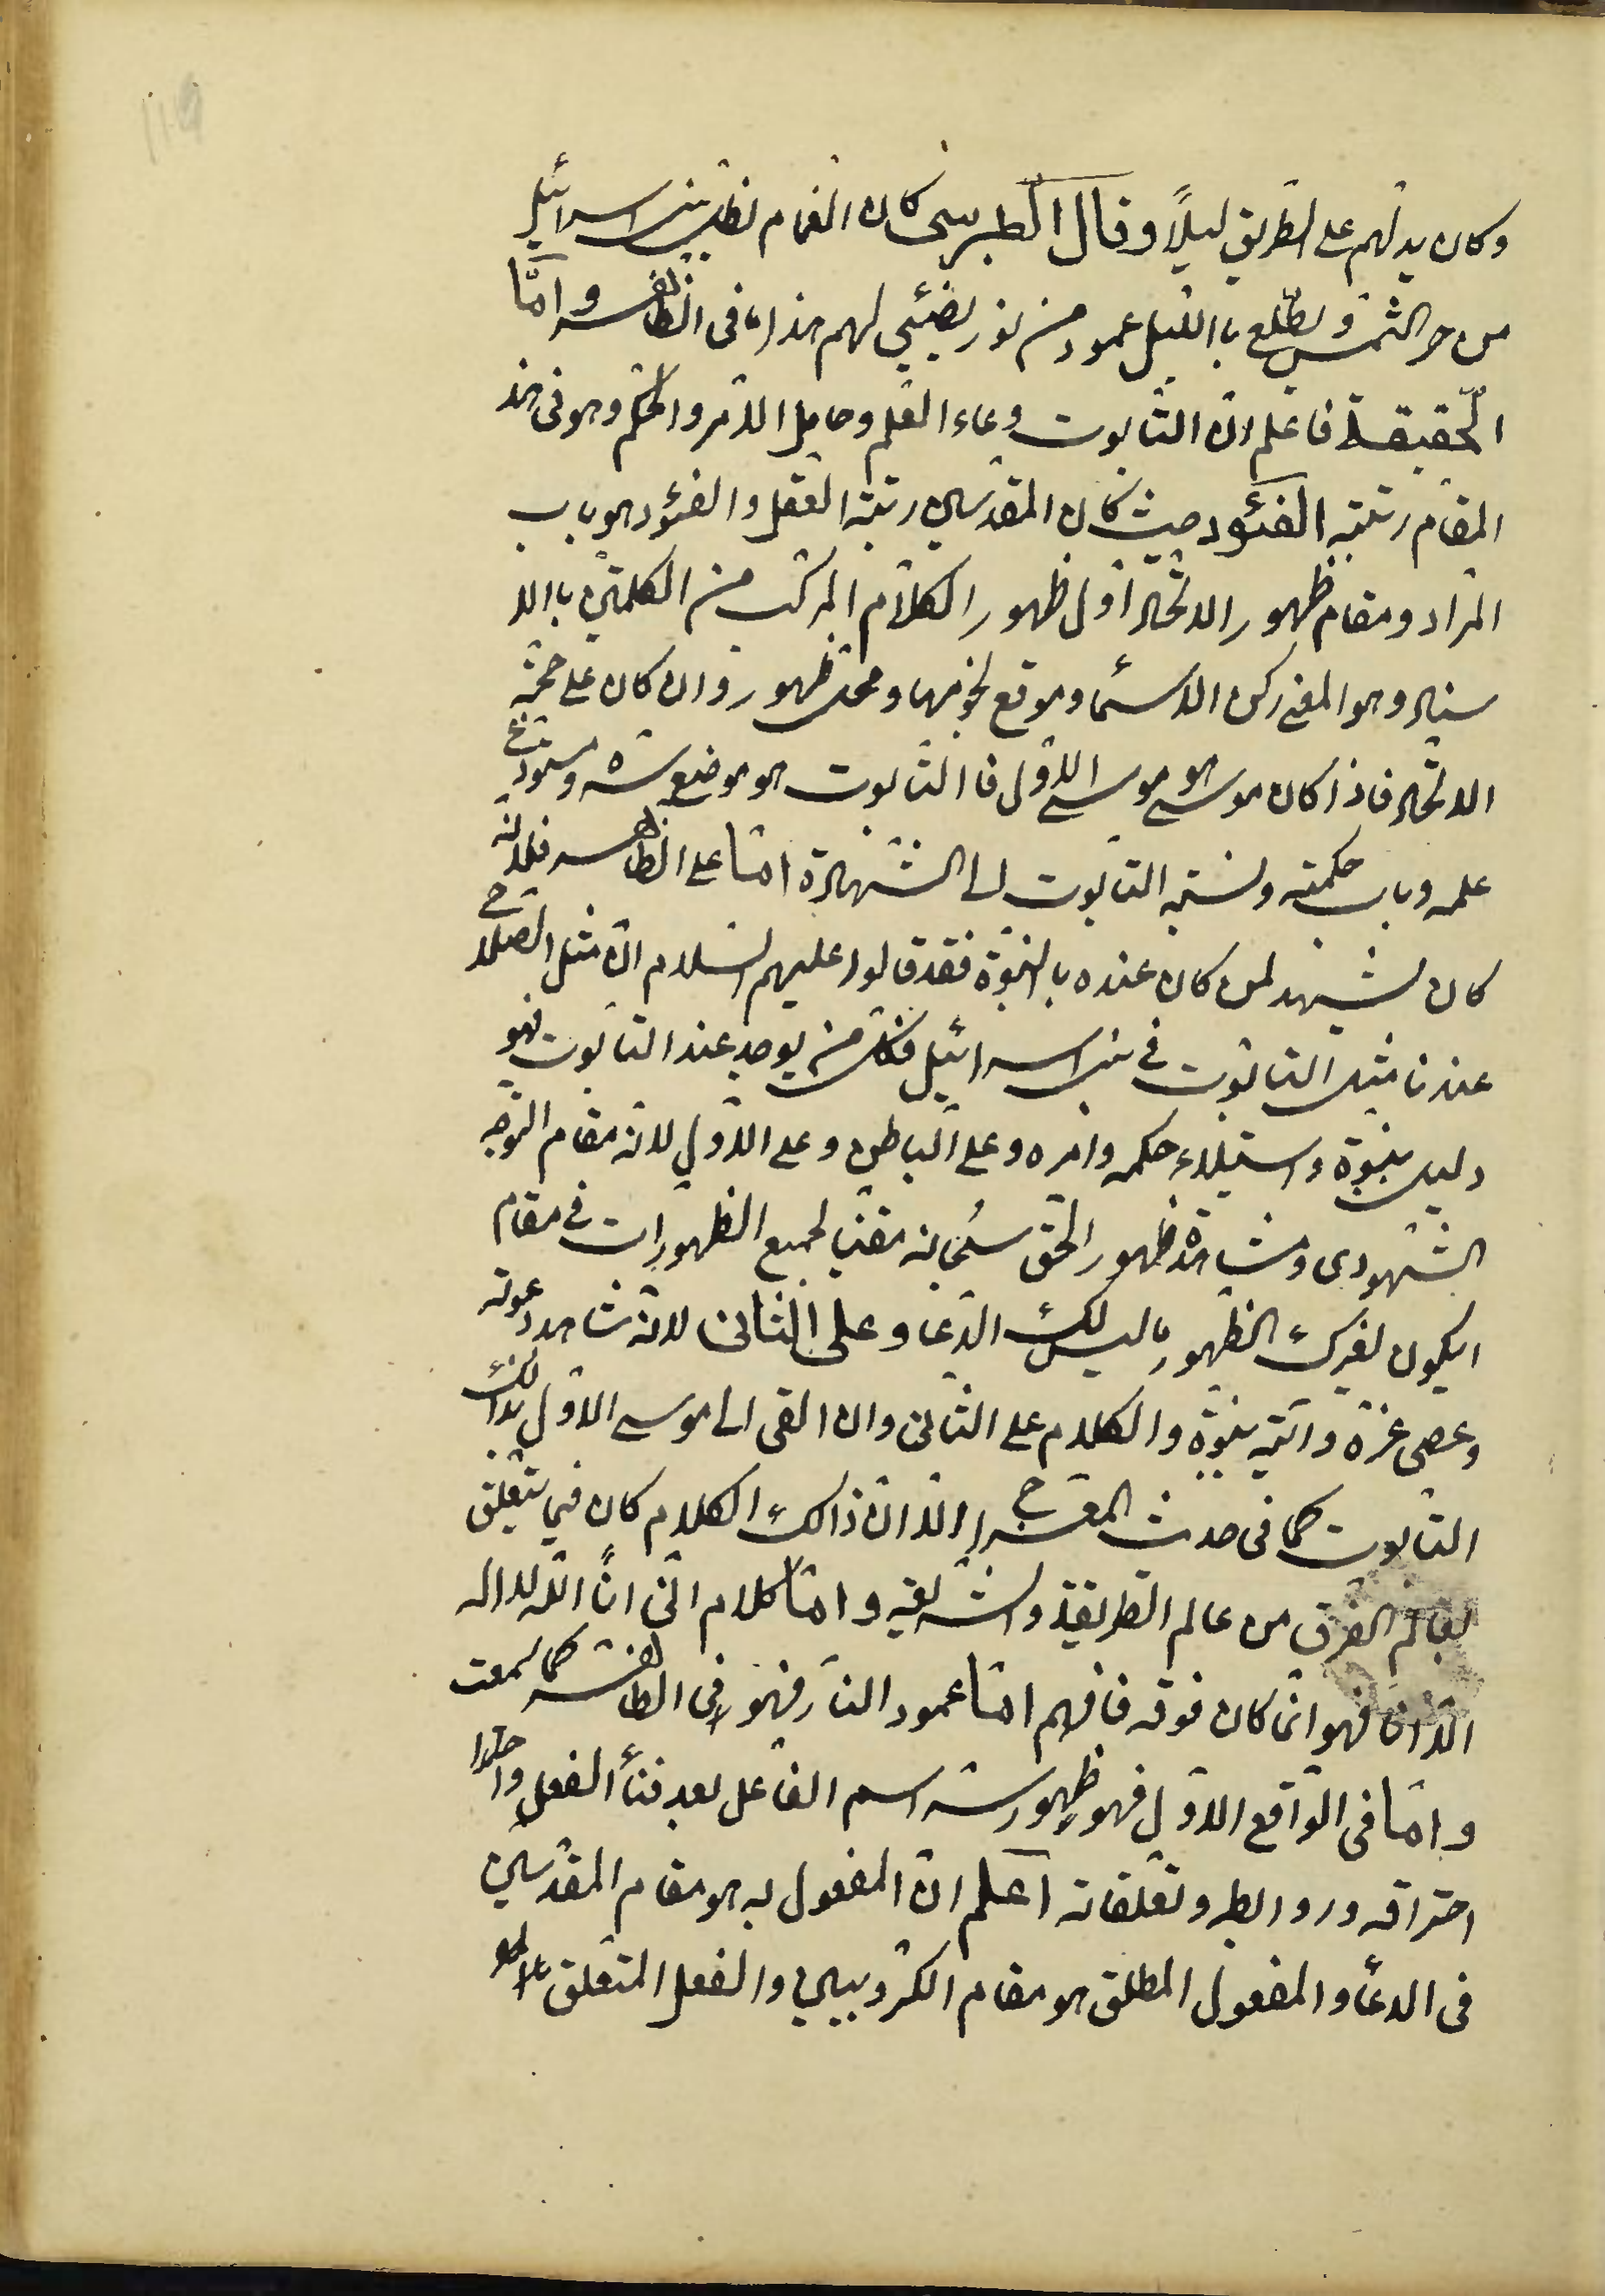 وكان يدلهم على الطريق ليلاً وقال الطبرسى كان الغمام تظل بنى اسرائيل
من حر الشمس ويطلع باالليل عمود من نور يضيئ لهم هذا ما فى الظاهر وامّا
الحقيقة فاعلم ان التابوت وعاء العلم وحامل الامر والحكم وهو فى هذ
المقام رتبته الفئود حيث كان المقدسين رتبة العقل والفئود هو باب
المراد ومقام ظهور الاتحاد اول ظهور الكلام المركب من الكلمتين باالا
سناد وهو المغ ركن الاسمأ وموقع نجومها ومحل ظهور وان كان على جهة
الاتحاد فاذا كان موسى هو موسى الاول فاالتابوت هو موضع سره ومستودع
علمه وباب حكمته ونسبة التابوت الى الشهادة امّا على الظاهر فلانه
كان يشهد لمن كان عنده بالنبوة فقد قالوا عليهم السلام ان مثل السلاح
عندنا مثل التابوت فى بنى اسرائيل فكل من يوجد عند التابوت فهو
دليل بنبوة واستيلاء حكمه وامره وعلى الباطن وعلى الاول لانه مقام التوجه
الشهودى ومشاهدة ظهور الحق سبحانه مغيب لجميع الظهورات فى مقام
ايكون لغيرك الظهور ما ليس لك الدعا وعلى الثانى لانه شاهد دعوته
وعصى عزة وآتيه بنبوة والكلام على الثانى وان القى الى موسى الاول بذالك
التابوت كما فى حدث المعراج الا ان ذالك الكلام كان فيما يتعلق
بعالم الفرق من عالم الطريقة والشريعة وامّا كلام انى انا الله لا اله
الا انا فهو انما كان فوقه فافهم امّا عمود النار فهو فى الظاهر كما سمعت
وامّا فى الواقع الاول فهو ظهور سر اسم الفاعل بعد فنأ الفعل واجزا
احتراقه وروابطه وتعلقاته اعلم ان المفعول به هو مقام المقدسين
فى الدعأ والمفعول المطلق هو مقام الكروبيين والفعل المتعلق